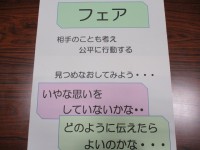 フェア
相手のことも考え
公平に行動する
見つめなおしてみよう・・・
いやな思いを
していないかな・・
どのように伝えたら
よいのかな・・・